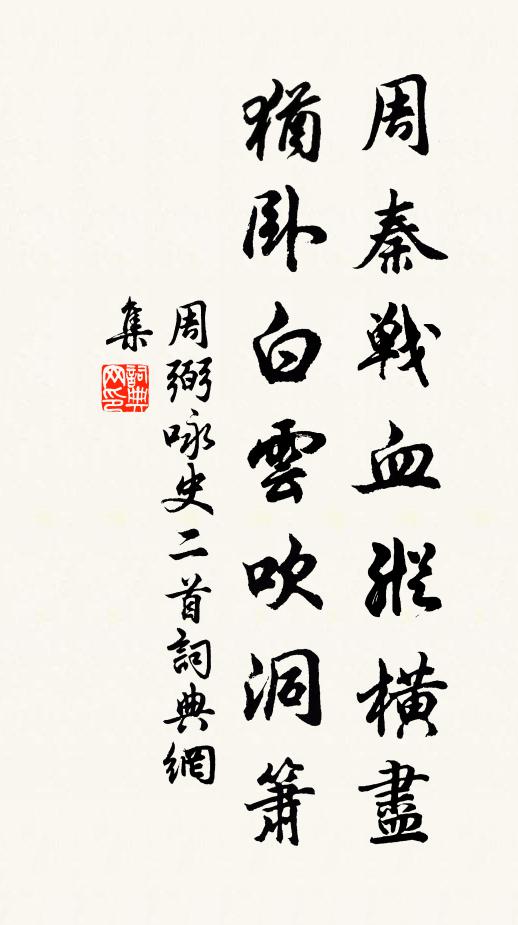 周秦戦血縱橫盡
猶卧白雲吹洞簫
周弼咏史二首詞典網
集
詞典
网印